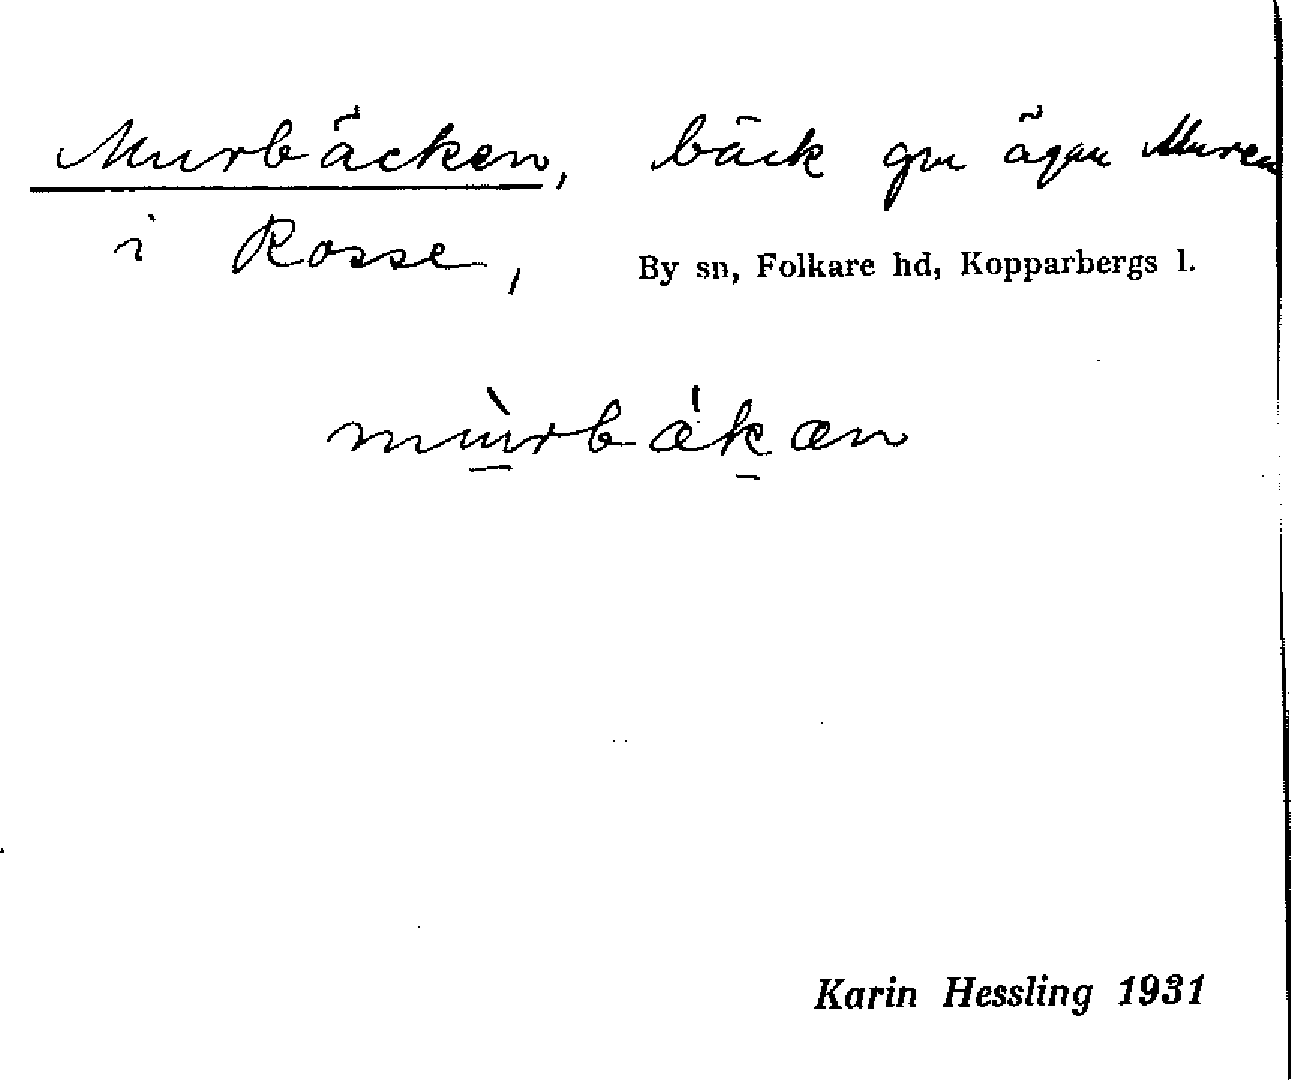 Murbäcken, bäck gm ägan Muren
i Rosse,
By sn, Folkare hd, Kopparbergs l.
mùrbákæn
Karin Hessling 1931